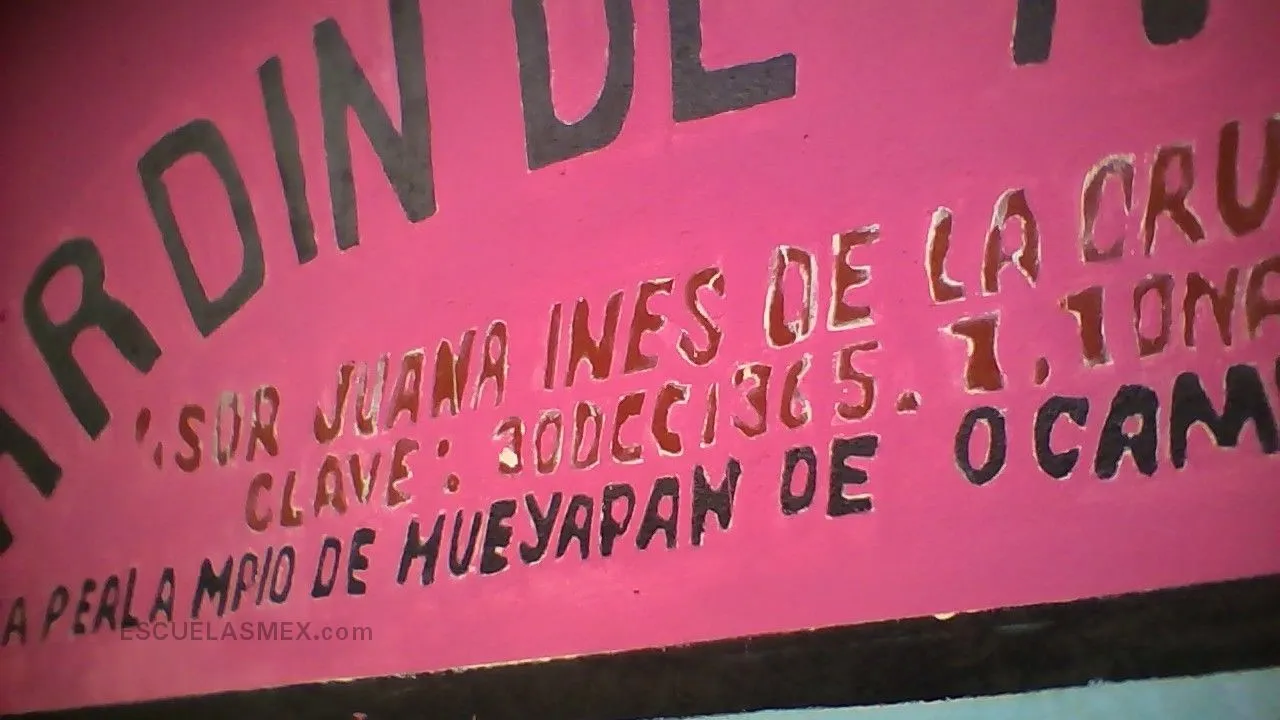 ARDIN DE
"SOR JUANA INES DE LA CRU
CLAVE: 30DCC1365. 1,1 ONA
A PERLA MPIO DE HUEYAPAN DE OCAM
ESCUELASMEX.com